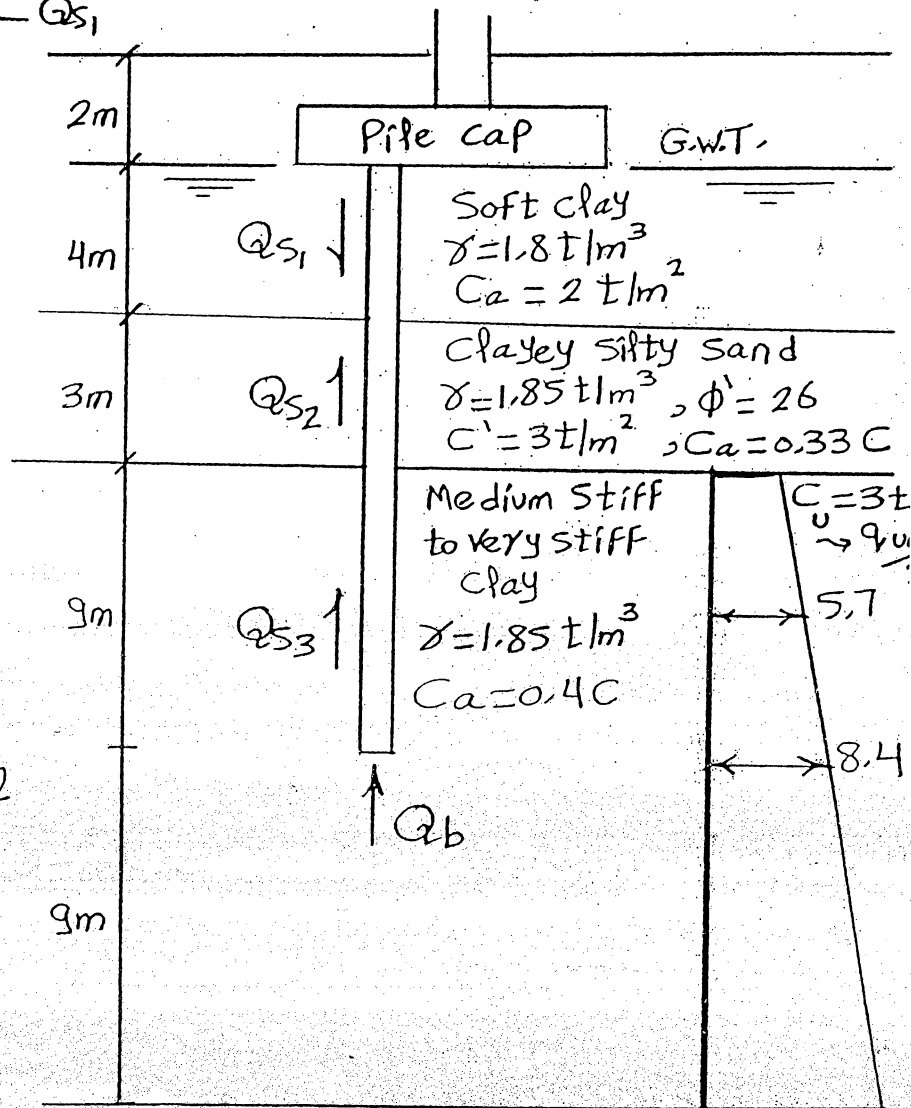 — Qs₁
2m
Pile cap
G.W.T.
4m
Qs₁
Soft clay
γ=1.8 t/m³
Ca = 2 t/m²
3m
Qs₂
Clayey silty sand
γ=1.85 t/m³ , ϕ'= 26
C'=3t/m² , Ca=0.33 C
9m
Qs₃
Medium stiff
to very stiff
clay
γ=1.85 t/m³
Ca=0.4C
Cᵤ=3t
5.7
8.4
2
Qb
9m